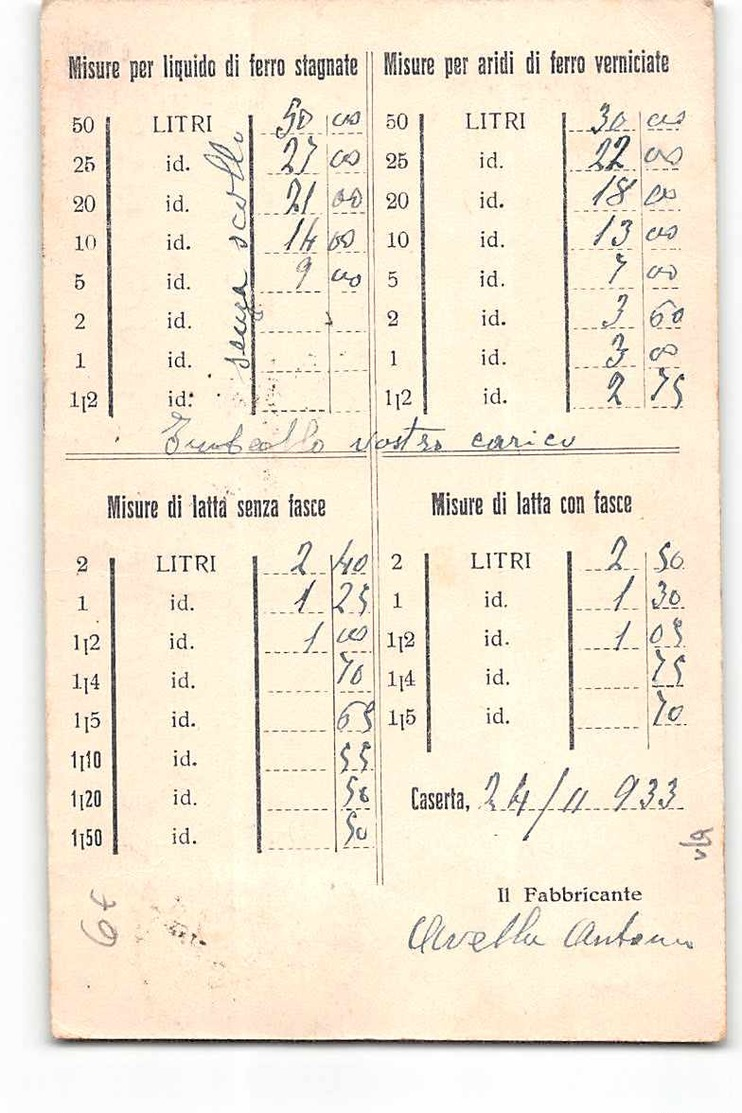 Misure per liquido di ferro stagnate
50 LITRI 50 00
25 id. 27 00
20 id. 21 00
10 id. 14 00
5 id. 9 00
2 id.
1 id.
1|2 id.
senza scollo
Misure per aridi di ferro verniciate
50 LITRI 30 00
25 id. 22 00
20 id. 18 00
10 id. 13 00
5 id. 7 00
2 id. 3 60
1 id. 3 00
1|2 id. 2 75
Imballo vostro carico
Misure di latta senza fasce
2 LITRI 2 40
1 id. 1 25
1|2 id. 1 00
1|4 id. 70
1|5 id. 65
1|10 id. 55
1|20 id. 50
1|50 id. 50
Misure di latta con fasce
2 LITRI 2 50
1 id. 1 30
1|2 id. 1 05
1|4 id. 75
1|5 id. 70
Caserta, 24/11 933
Il Fabbricante
Avella Antonio
6€